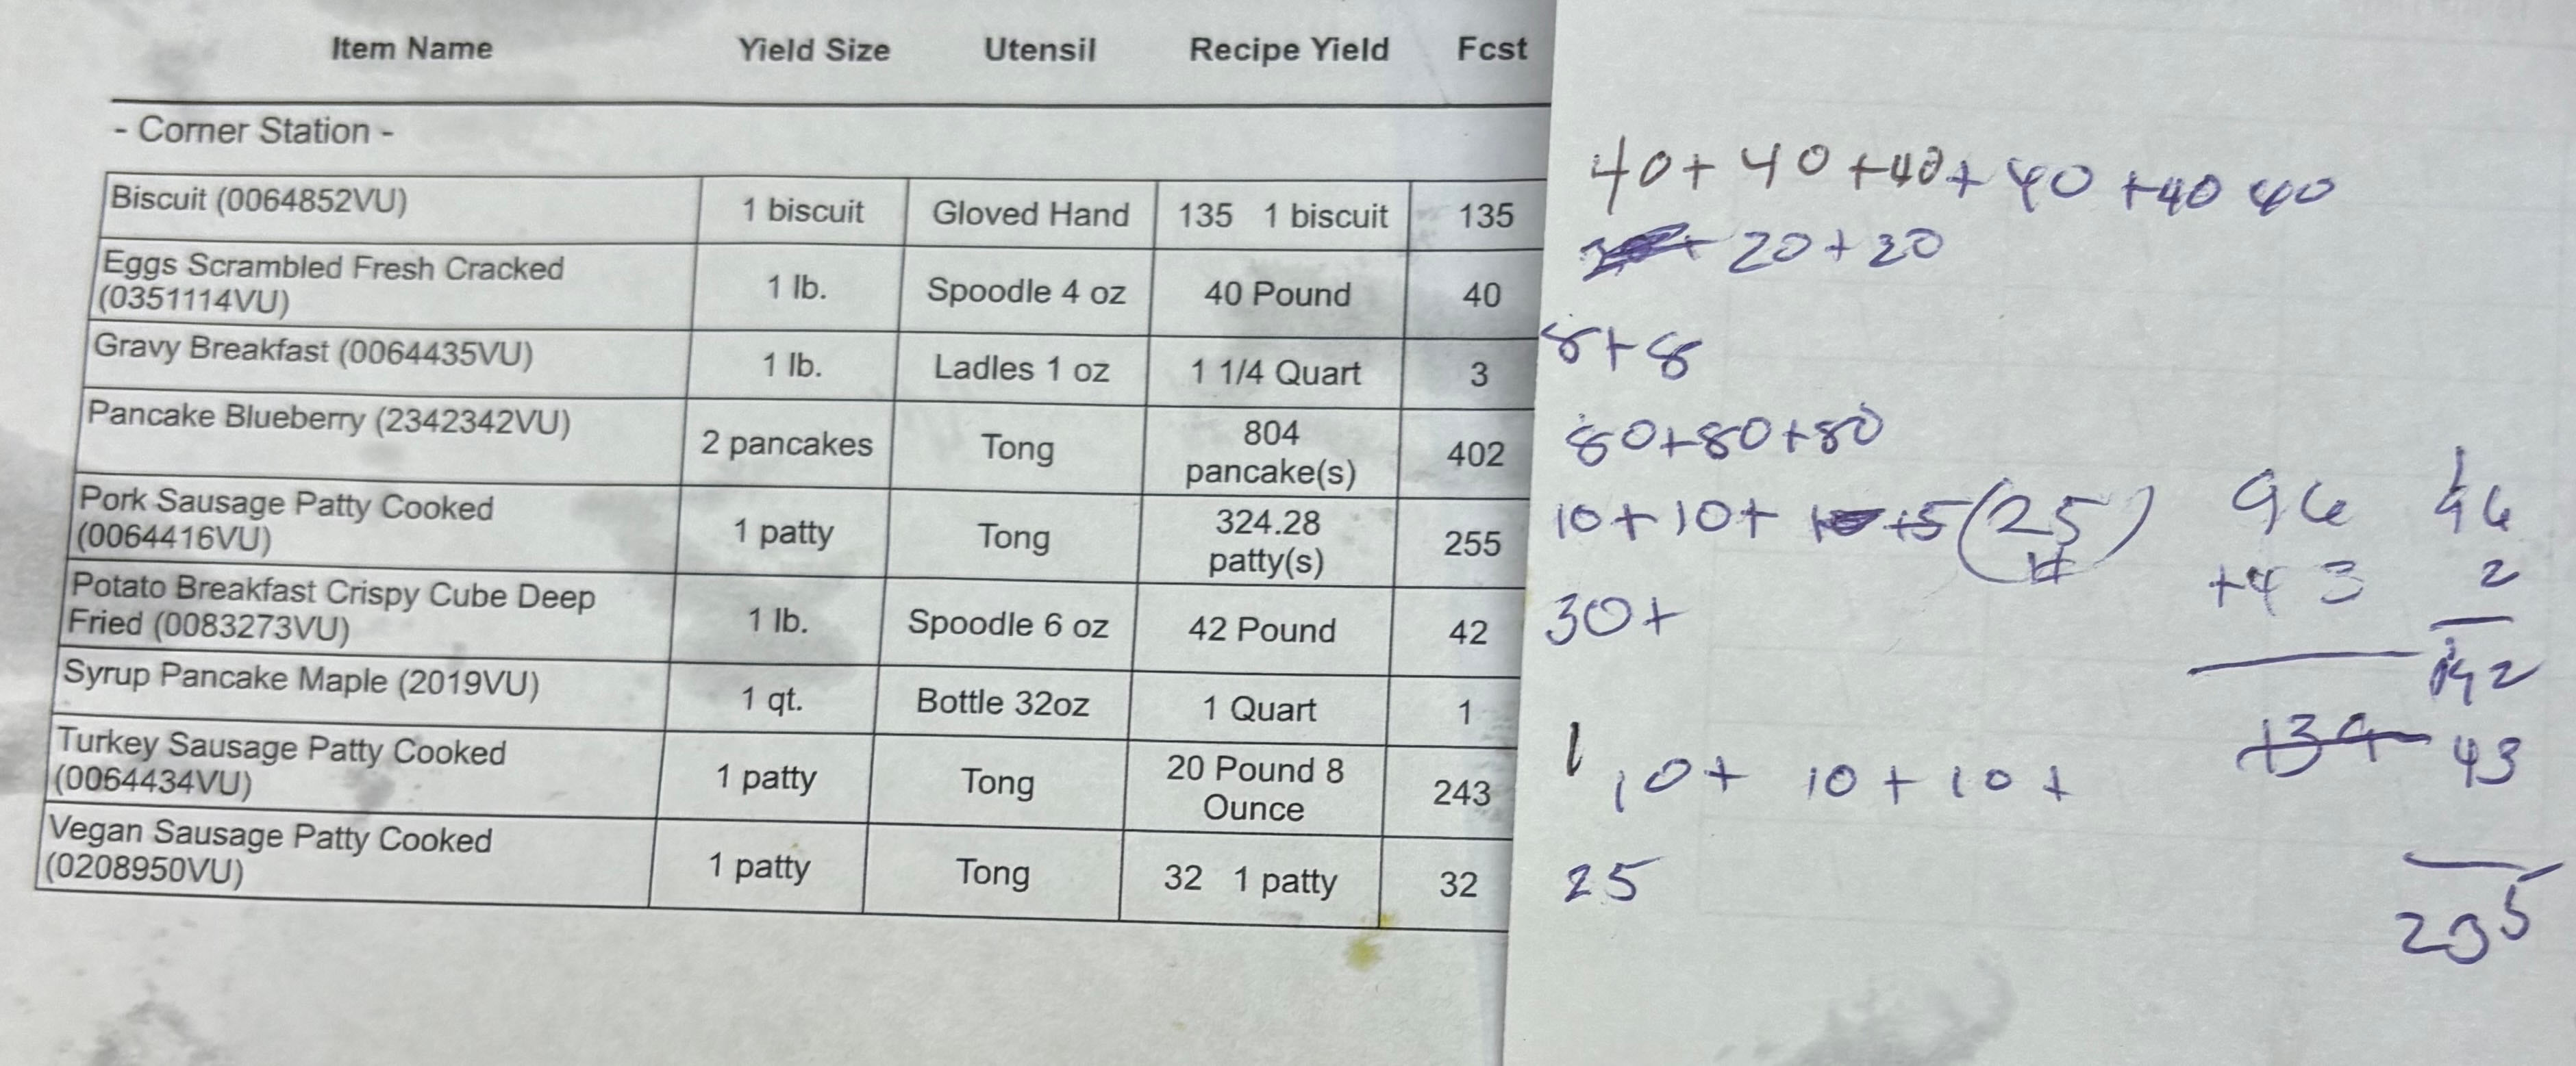 Item Name Yield Size Utensil Recipe Yield Fcst
- Corner Station -
Biscuit (0064852VU) 1 biscuit Gloved Hand 135 1 biscuit 135
40+ 40 +40+ 40 +40 40
Eggs Scrambled Fresh Cracked
(0351114VU) 1 lb. Spoodle 4 oz 40 Pound 40
20+20
Gravy Breakfast (0064435VU) 1 lb. Ladles 1 oz 1 1/4 Quart 3
8+8
Pancake Blueberry (2342342VU) 2 pancakes Tong 804
pancake(s) 402
80+80+80
Pork Sausage Patty Cooked
(0064416VU) 1 patty Tong 324.28
patty(s) 255
10+10+ +5 (25)
Potato Breakfast Crispy Cube Deep
Fried (0083273VU) 1 lb. Spoodle 6 oz 42 Pound 42
30+
Syrup Pancake Maple (2019VU) 1 qt. Bottle 32oz 1 Quart 1
1
Turkey Sausage Patty Cooked
(0064434VU) 1 patty Tong 20 Pound 8
Ounce 243
10+ 10+10+
Vegan Sausage Patty Cooked
(0208950VU) 1 patty Tong 32 1 patty 32
25
96
+43
139
96
2
192
43
235